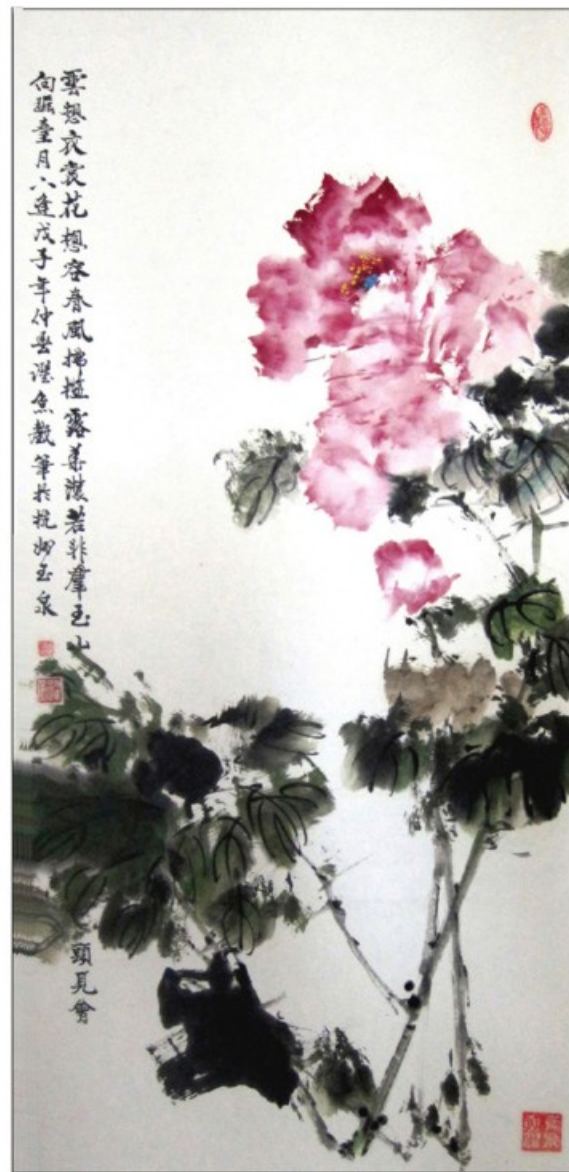 雲想衣裳花想容春風拂檻露華濃若非羣玉山
頭見會
向瑶臺月下逢戊子年仲春魚筆於杭州玉泉